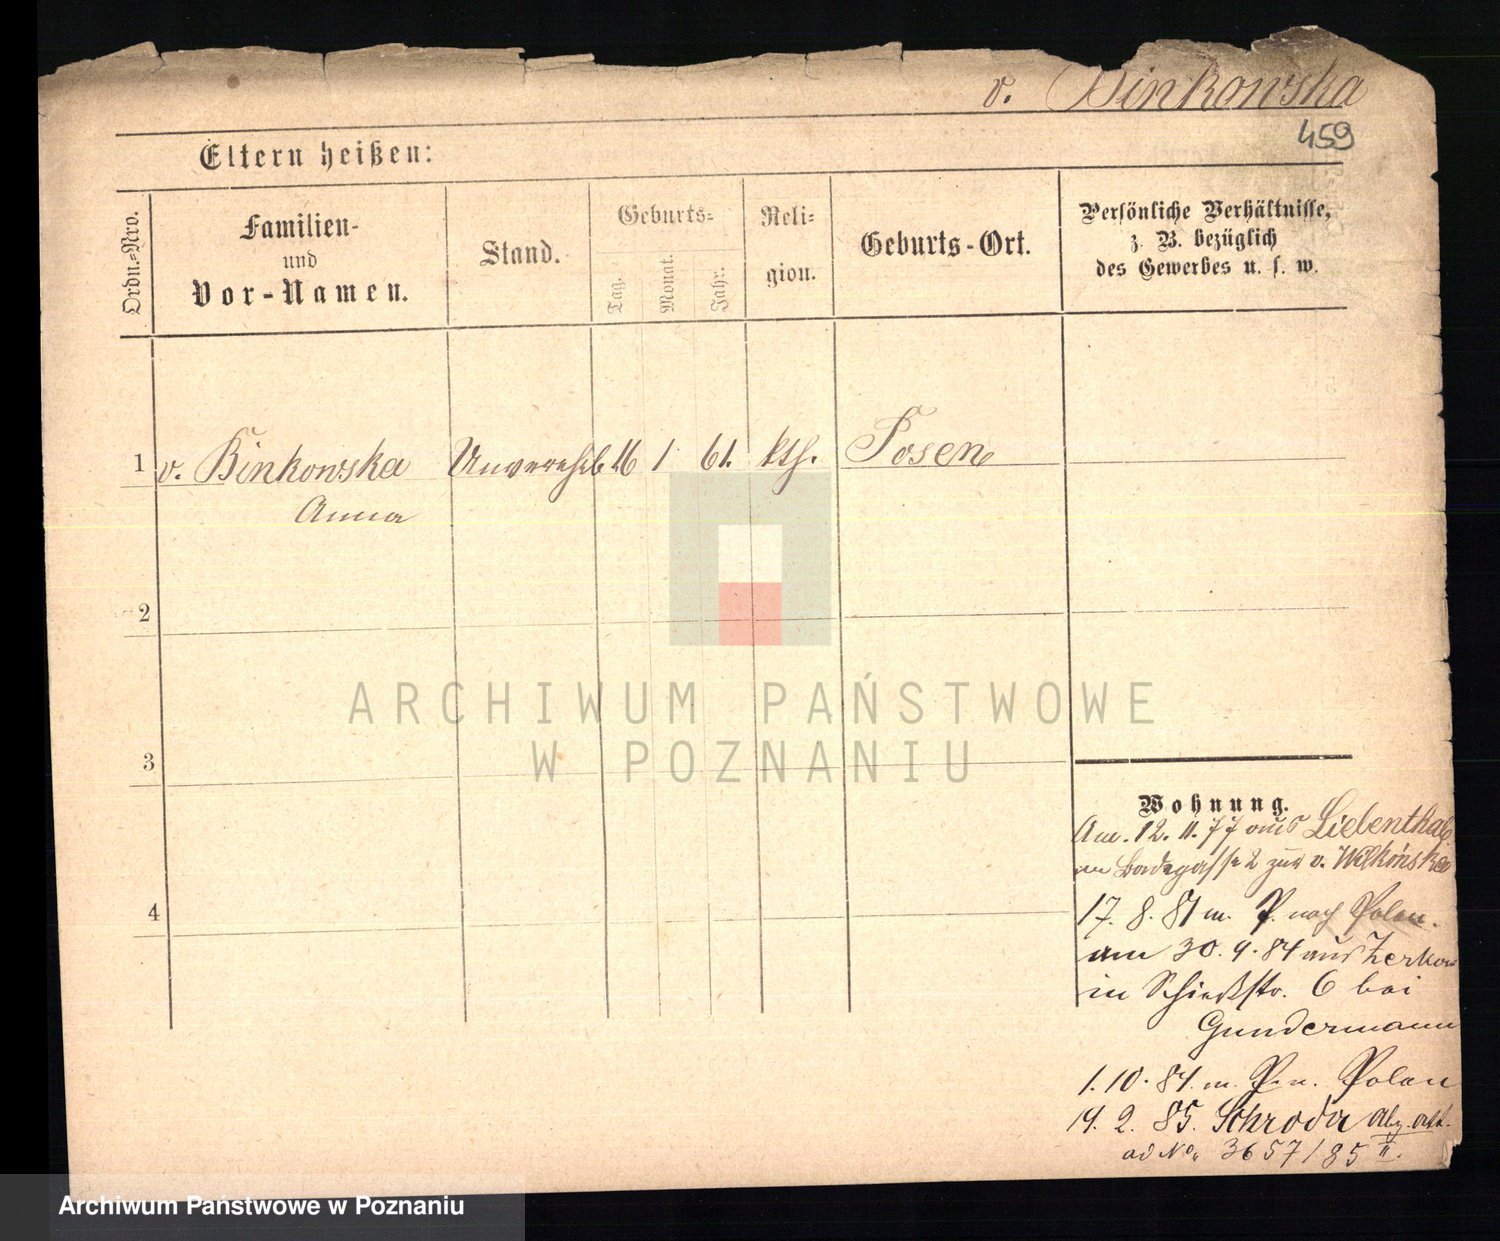 v. Binkowska
459
Eltern heißen:
Ordn.-Nro.
Familien-
und
Vor-Namen.
Stand.
Geburts-
Tag.
Monat.
Jahr.
Reli-
gion.
Geburts-Ort.
Persönliche Verhältnisse,
z. B. bezüglich
des Gewerbes u. s. w.
1 v. Binkowska Unverehl. 16 1 61. kth. Posen
Anna
2
3
4
ARCHIWUM PAŃSTWOWE
W POZNANIU
Wohnung.
Am. 12. 11. 77 aus Liebenthal
in Badegasse 2 zur v. Wilkońska
17. 8. 81 m. P. nach Polen.
am 30. 9. 84 aus Zerkow
in Schießstr. 6 bei
Gundermann
1. 10. 84. m. P. n. Polen
19. 2. 85. Schroda Abz. att.
ad No. 3657/85 II.
Archiwum Państwowe w Poznaniu